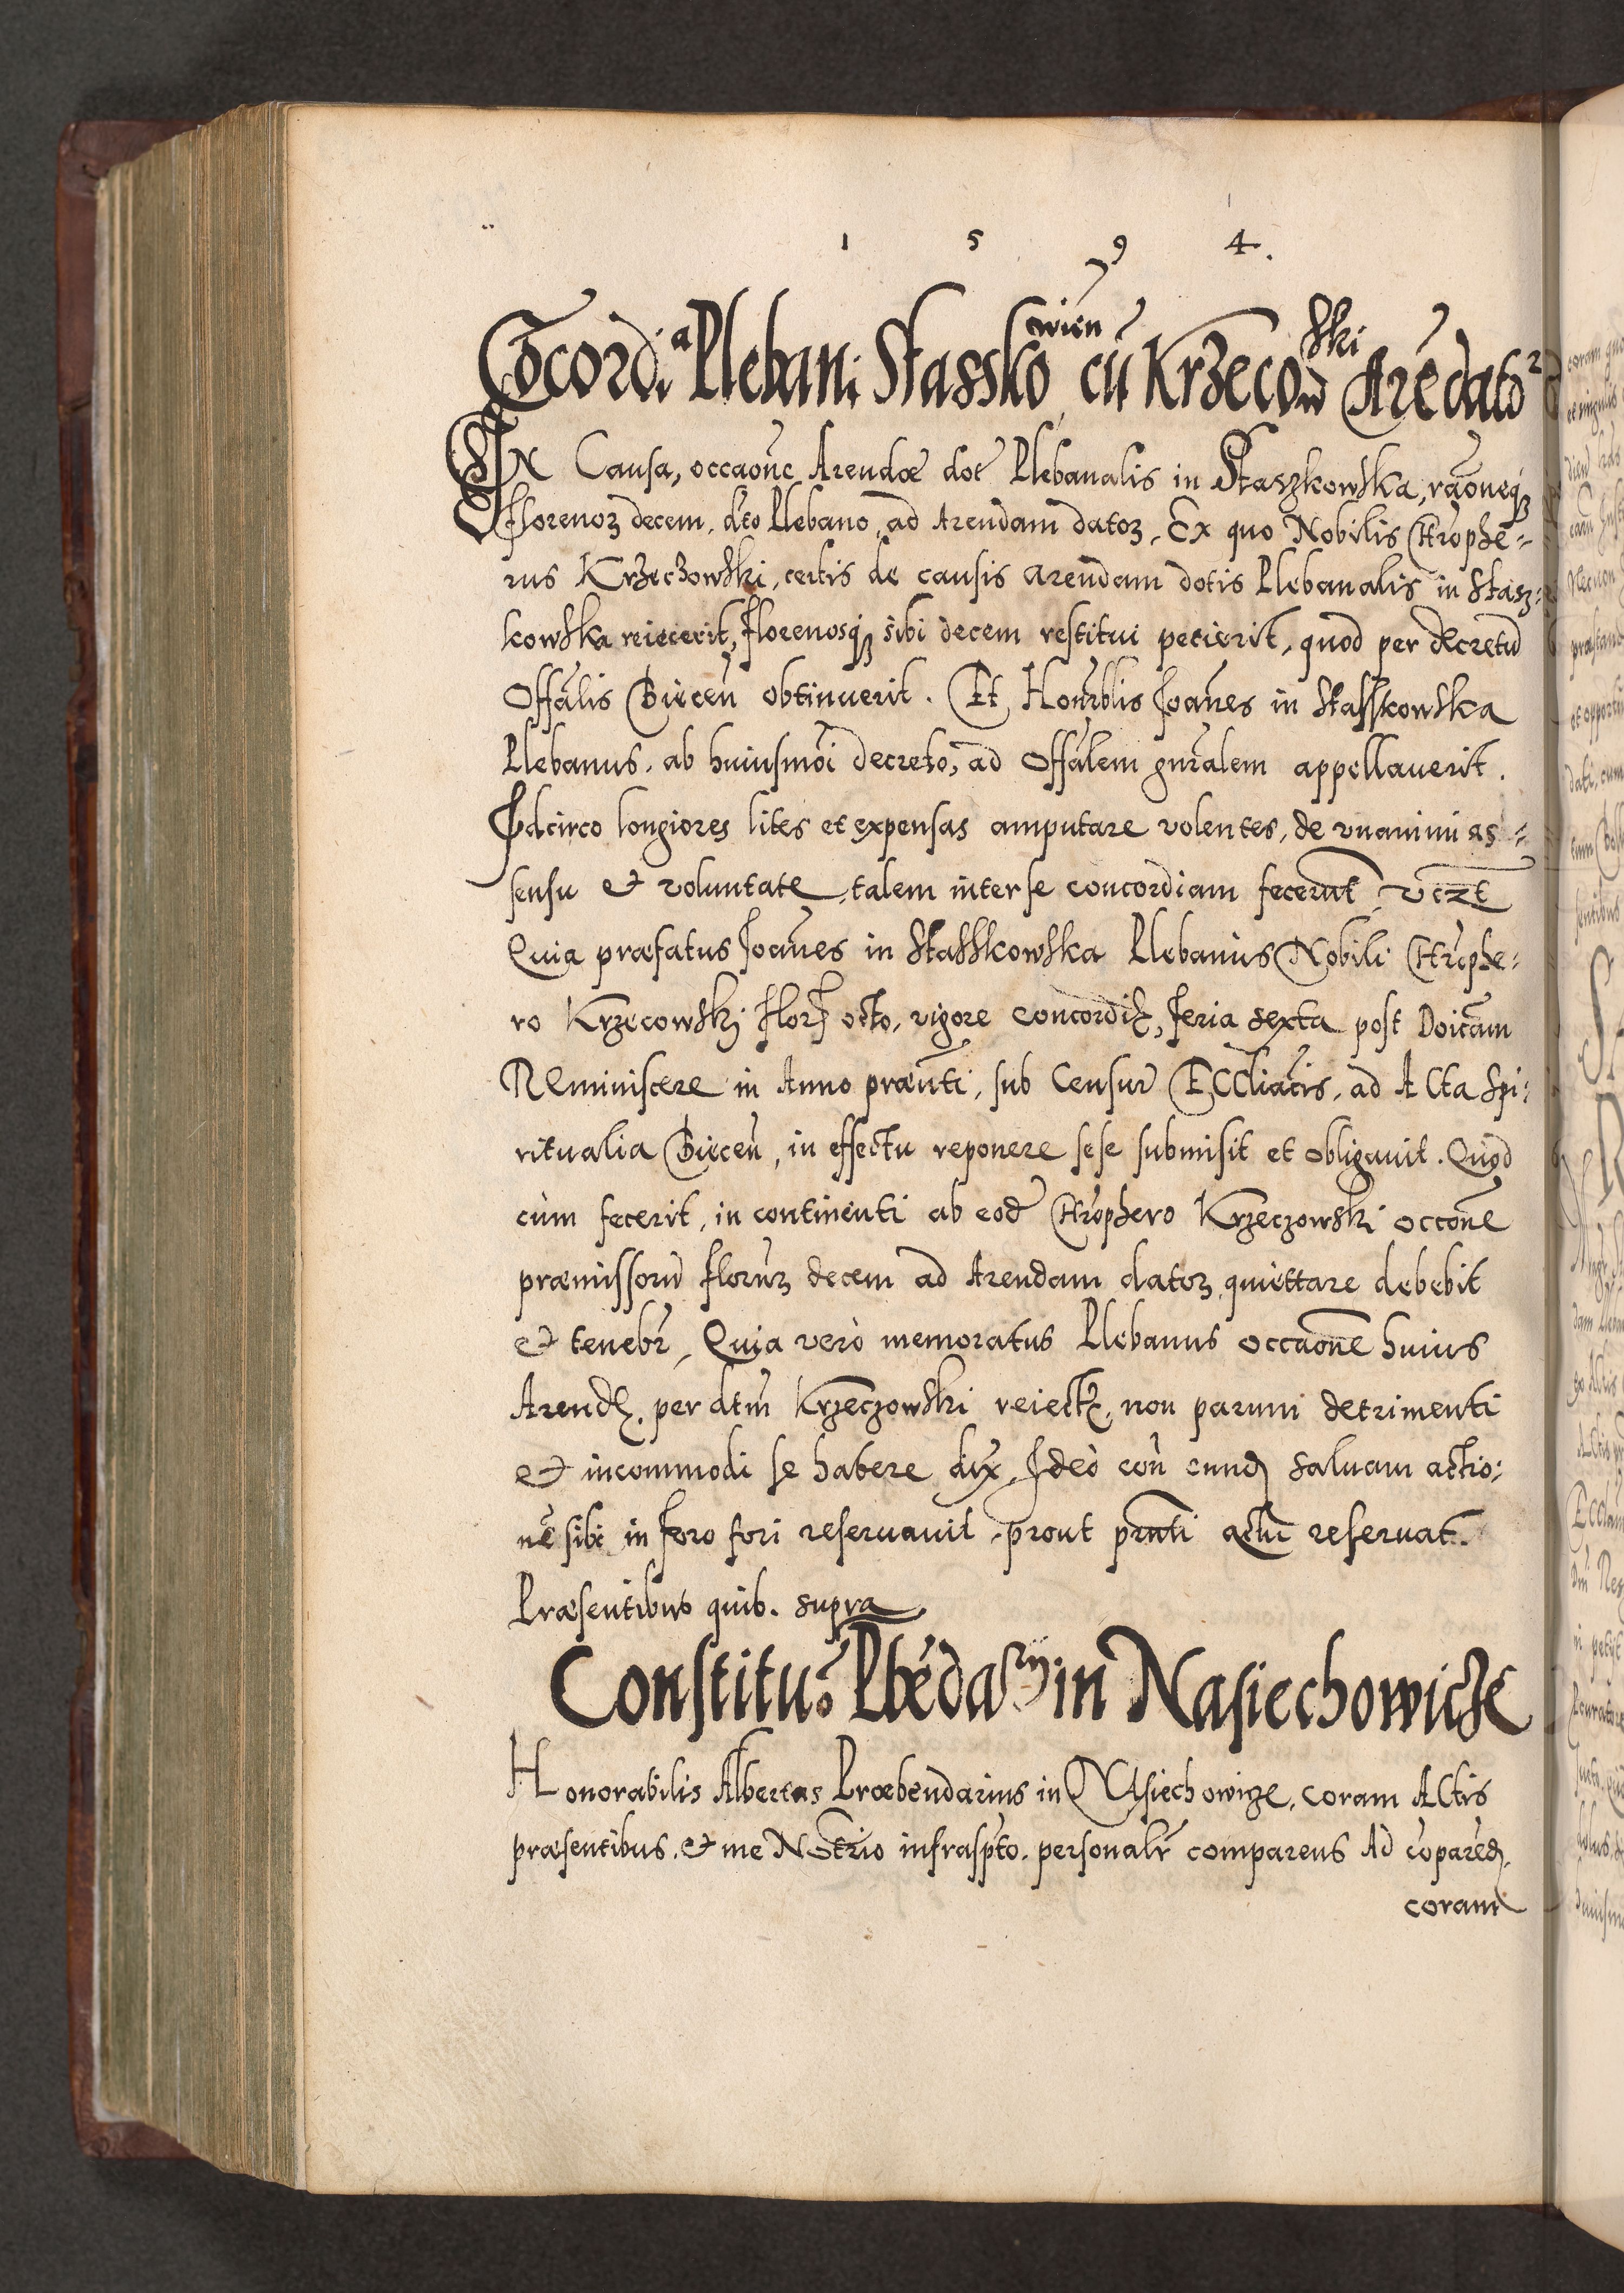 1 5 9 4.
Cõcordia Plebani Stasskowien̄ cū Krzecowski Arēdator
IN Causa, occaōne Arendæ dot̄ Plebanalis in Staszkowska, rāoneq́ꝫ
florenoꝝ decem, dc̄to Plebano, ad Arendam datoꝝ, Ex quo Nobilis Chrophe-
rus Krzeczowski, certis de causis arendam dotis Plebanalis in Stasz-
kowska reiecerit, florenosq́ꝫ sibi decem restitui petierit, quod per decretū
Offālis Biecen̄ obtinuerit. Et Honrblis Joañes in Stasskowska
Plebanus, ab huiusmōi decreto, ad Offālem gnralem appellauerit.
Idcirco longiores lites et expensas amputare volentes, de vnanimi as-
sensu et voluntate, talem inter se concordiam fecerūt, vcꝫt
Quia præfatus Joañes in Stasskowska Plebanus Nobili Chrophe-
ro Krzecowski flor̄ octo, vigore concordię, feria sexta post Doicam
Reminiscere in Anno præn̄ti, sub Censur̄ Eccliācis, ad Acta Spi-
ritualia Biecen̄, in effectu reponere sese submisit et obligauit. Quod
cùm fecerit, in continenti ab eod̄ Chrophero Krzeczowski occōne
præmissorū florn̄ꝝ decem ad Arendam datoꝝ, quiettare debebit
et tenebr̄, Quia verò memoratus Plebanus occaōne huius
Arendę, per dctm̄ Krzeczowski reiectę, non parum detrimenti
et incommodi se habere dix̄, Ideò con̄ eund̄ saluam actio-
nē sibi in foro fori reseruauit, prout prn̄ti actu reseruat.
Præsentibus quib. supra
Constituo Pbēdarij in Nasiechowicze
Honorabilis Albertus Præbendarius in Nasiechowicze, coram Actis
præsentibus, et me Notrio infrasp̄to, personalr̄ comparens Ad cōparēd̄.
coram